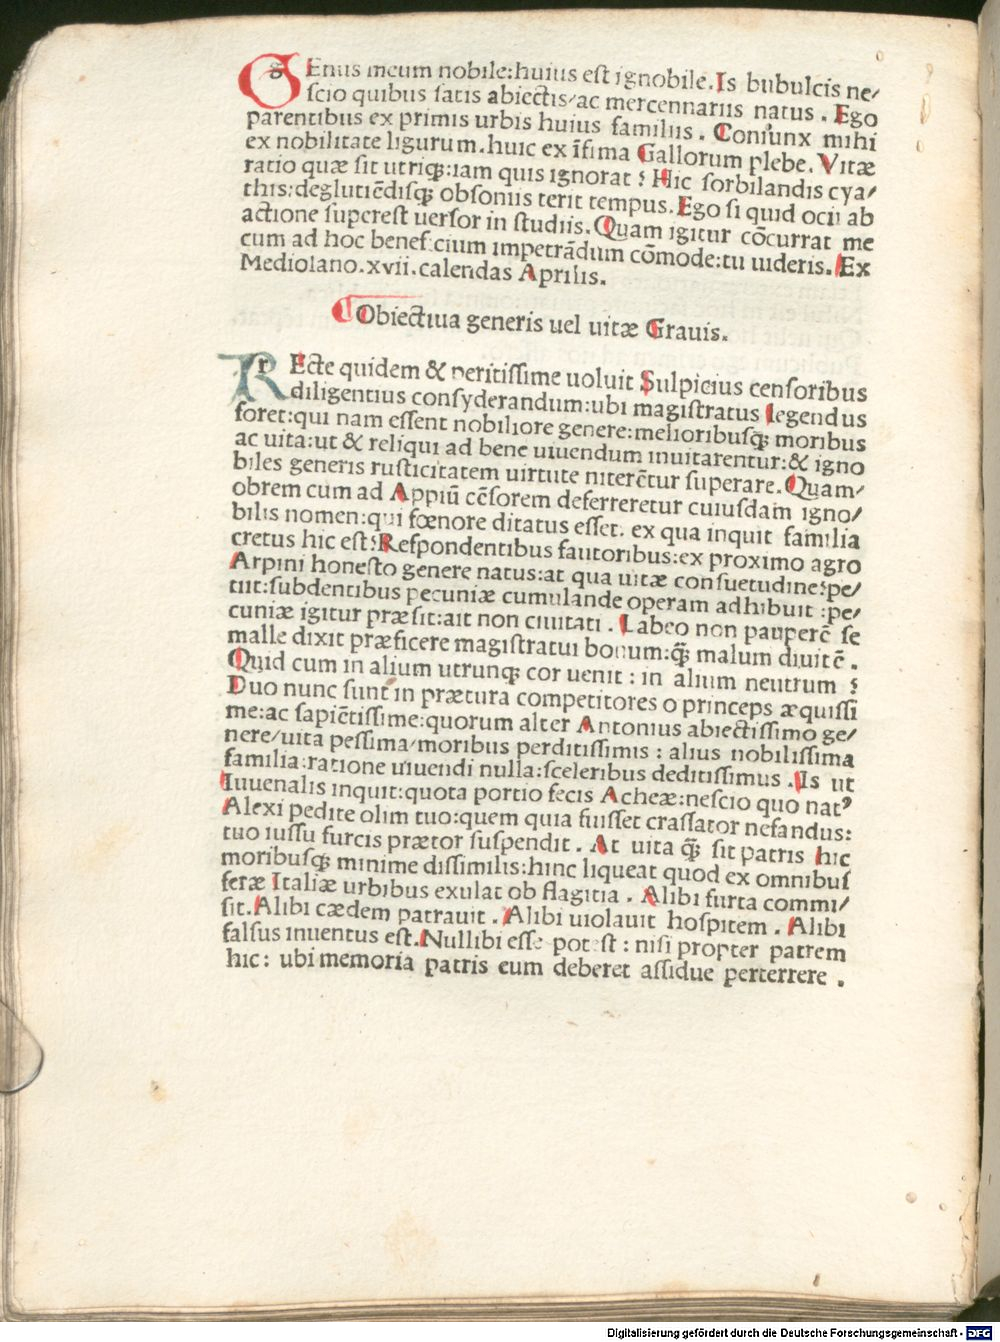 GEnus meum nobile:huius est ignobile.Is bubulcis ne/
scio quibus satis abiectis/ac mercennariis natus . Ego
parentibus ex primis urbis huius familiis . Coniunx mihi
ex nobilitate ligurum.huic ex īfima Gallorum plebe. Vitæ
ratio quæ sit utriq;:iam quis ignorat ? Hic sorbilandis cya/
this:deglutiēdisq; obsoniis terit tempus. Ego si quid ocii ab
actione superest uersor in studiis. Quam igitur cōcurrat me
cum ad hoc beneficium impetrādum cōmode:tu uideris. Ex
Mediolano.xvii.calendas Aprilis.
¶Obiectiua generis uel uitæ Grauis.
REcte quidem & peritissime uoluit Sulpicius censoribus
diligentius consyderandum:ubi magistratus legendus
foret:qui nam essent nobiliore genere:melioribusq; moribus
ac uita:ut & reliqui ad bene uiuendum inuitarentur:& igno
biles generis rusticitatem uirtute niterētur superare. Quam/
obrem cum ad Appiū cēsorem deferreretur cuiusdam igno/
bilis nomen:qui fœnore ditatus esset. ex qua inquit familia
cretus hic est?Respondentibus fautoribus:ex proximo agro
Arpini honesto genere natus:at qua uitæ consuetudine?pe/
tiit:subdentibus pecuniæ cumulande operam adhibuit :pe/
cuniæ igitur præsit:ait non ciuitati . Labeo non pauperē se
malle dixit præficere magistratui bonum:q̄; malum diuitē .
Quid cum in alium utrunq; cor uenit : in alium neutrum ?
Duo nunc sunt in prætura competitores o princeps æquissi
me:ac sapiētissime:quorum alter Antonius abiectissimo ge/
nere/uita pessima/moribus perditissimis : alius nobilissima
familia:ratione uiuendi nulla:sceleribus deditissimus . Is ut
Iuuenalis inquit:quota portio fecis Acheæ:nescio quo natꝰ
Alexi pedite olim tuo:quem quia fuisset crassator nefandus:
tuo iussu furcis prætor suspendit . At uita q̄; sit patris hic
moribusq; minime dissimilis:hinc liqueat quod ex omnibus
feræ Italiæ urbibus exulat ob flagitia . Alibi furta commi/
sit.Alibi cædem patrauit . Alibi uiolauit hospitem . Alibi
falsus inuentus est.Nullibi esse potest : nisi propter patrem
hic: ubi memoria patris eum deberet assidue perterrere .
Digitalisierung gefördert durch die Deutsche Forschungsgemeinschaft - DFG